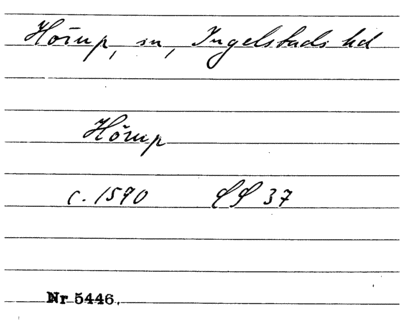 Hörup, sn, Ingelstads hd
Hörup
c. 1590 SS 37
Nr 5446.